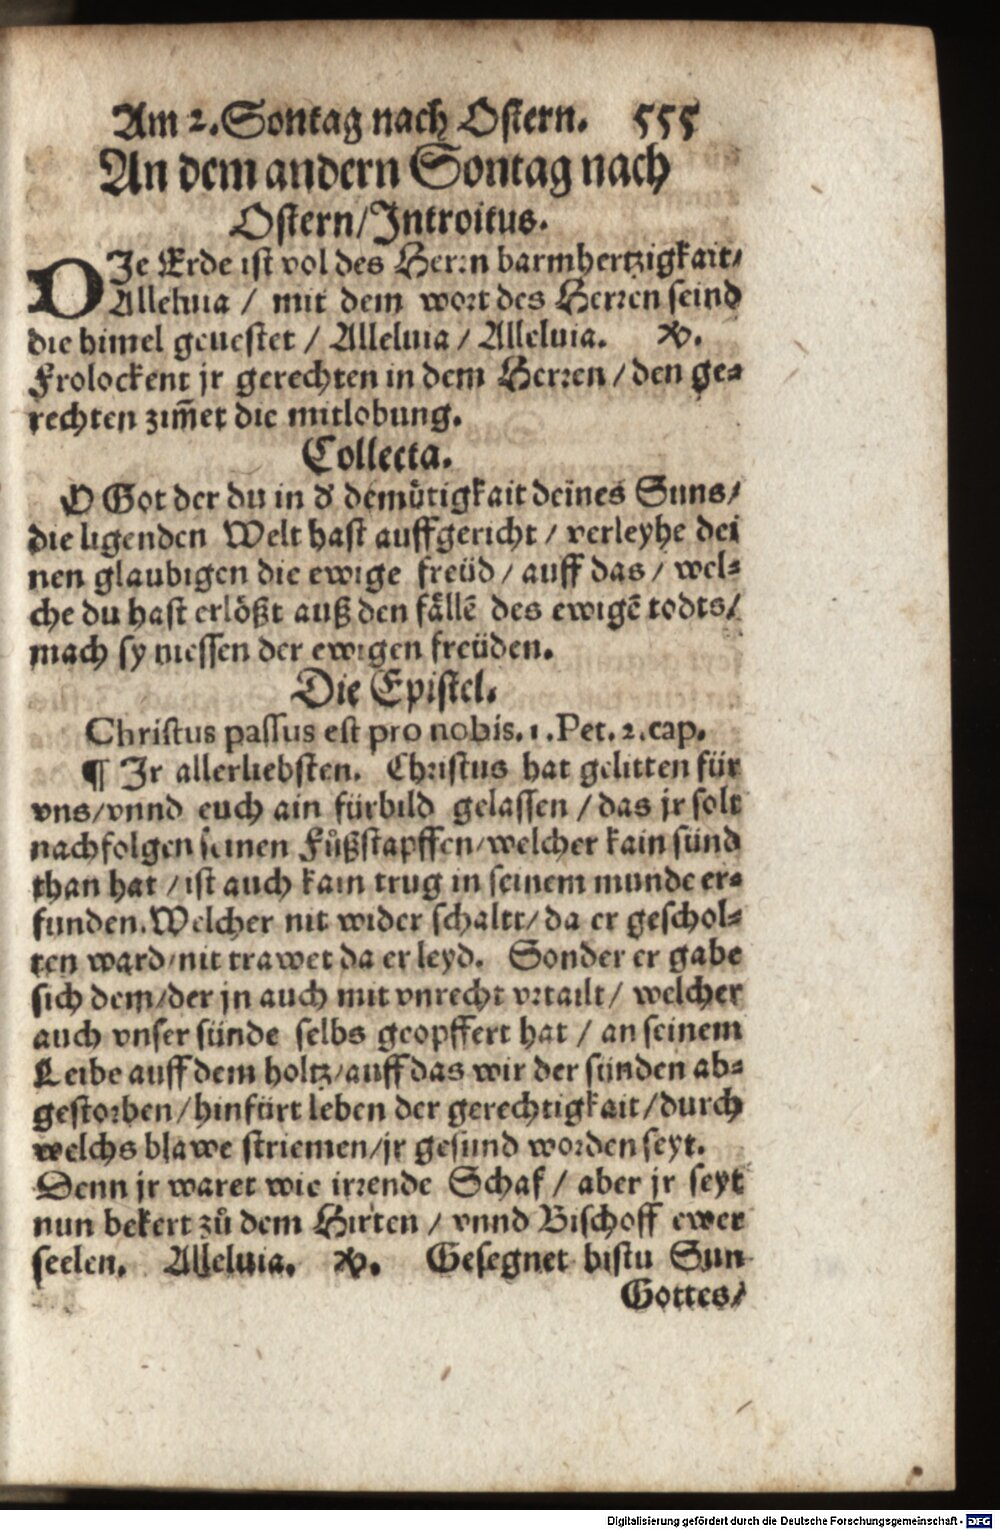 Am 2. Sontag nach Ostern. 555
An dem andern Sontag nach
Ostern/Introitus.
DJe Erde ist vol des Herrn barmhertzigkait/
Alleluia / mit dem wort des Herren seind
die himel geuestet / Alleluia / Alleluia. ℣.
Frolockent jr gerechten in dem Herren / den ge⸗
rechten zim̃et die mitlobung.
Collecta.
O Got der du in d' demuͤtigkait deines Suns/
die ligenden Welt hast auffgericht / verleyhe dei
nen glaubigen die ewige freüd / auff das / wel⸗
che du hast erloͤßt auß den faͤllē des ewigē todts/
mach sy niessen der ewigen freüden.
Die Epistel.
Christus passus est pro nobis. 1. Pet. 2. cap.
¶ Jr allerliebsten. Christus hat gelitten für
vns/vnnd euch ain fürbild gelassen / das jr solt
nachfolgen seinen Fuͦßstapffen/welcher kain sünd
than hat / ist auch kain trug in seinem munde er⸗
funden. Welcher nit wider schaltt/ da er geschol⸗
ten ward/nit trawet da er leyd. Sonder er gabe
sich dem/der jn auch mit vnrecht vrtailt / welcher
auch vnser sünde selbs geopffert hat / an seinem
Leibe auff dem holtz/auff das wir der sünden ab⸗
gestorben/hinfürt leben der gerechtigkait/durch
welchs blawe striemen/jr gesund worden seyt.
Denn jr waret wie irrende Schaf / aber jr seyt
nun bekert zuͦ dem Hirten / vnnd Bischoff ewer
seelen. Alleluia. ℣. Gesegnet bistu Sun
Gottes/
Digitalisierung gefördert durch die Deutsche Forschungsgemeinschaft - DFG